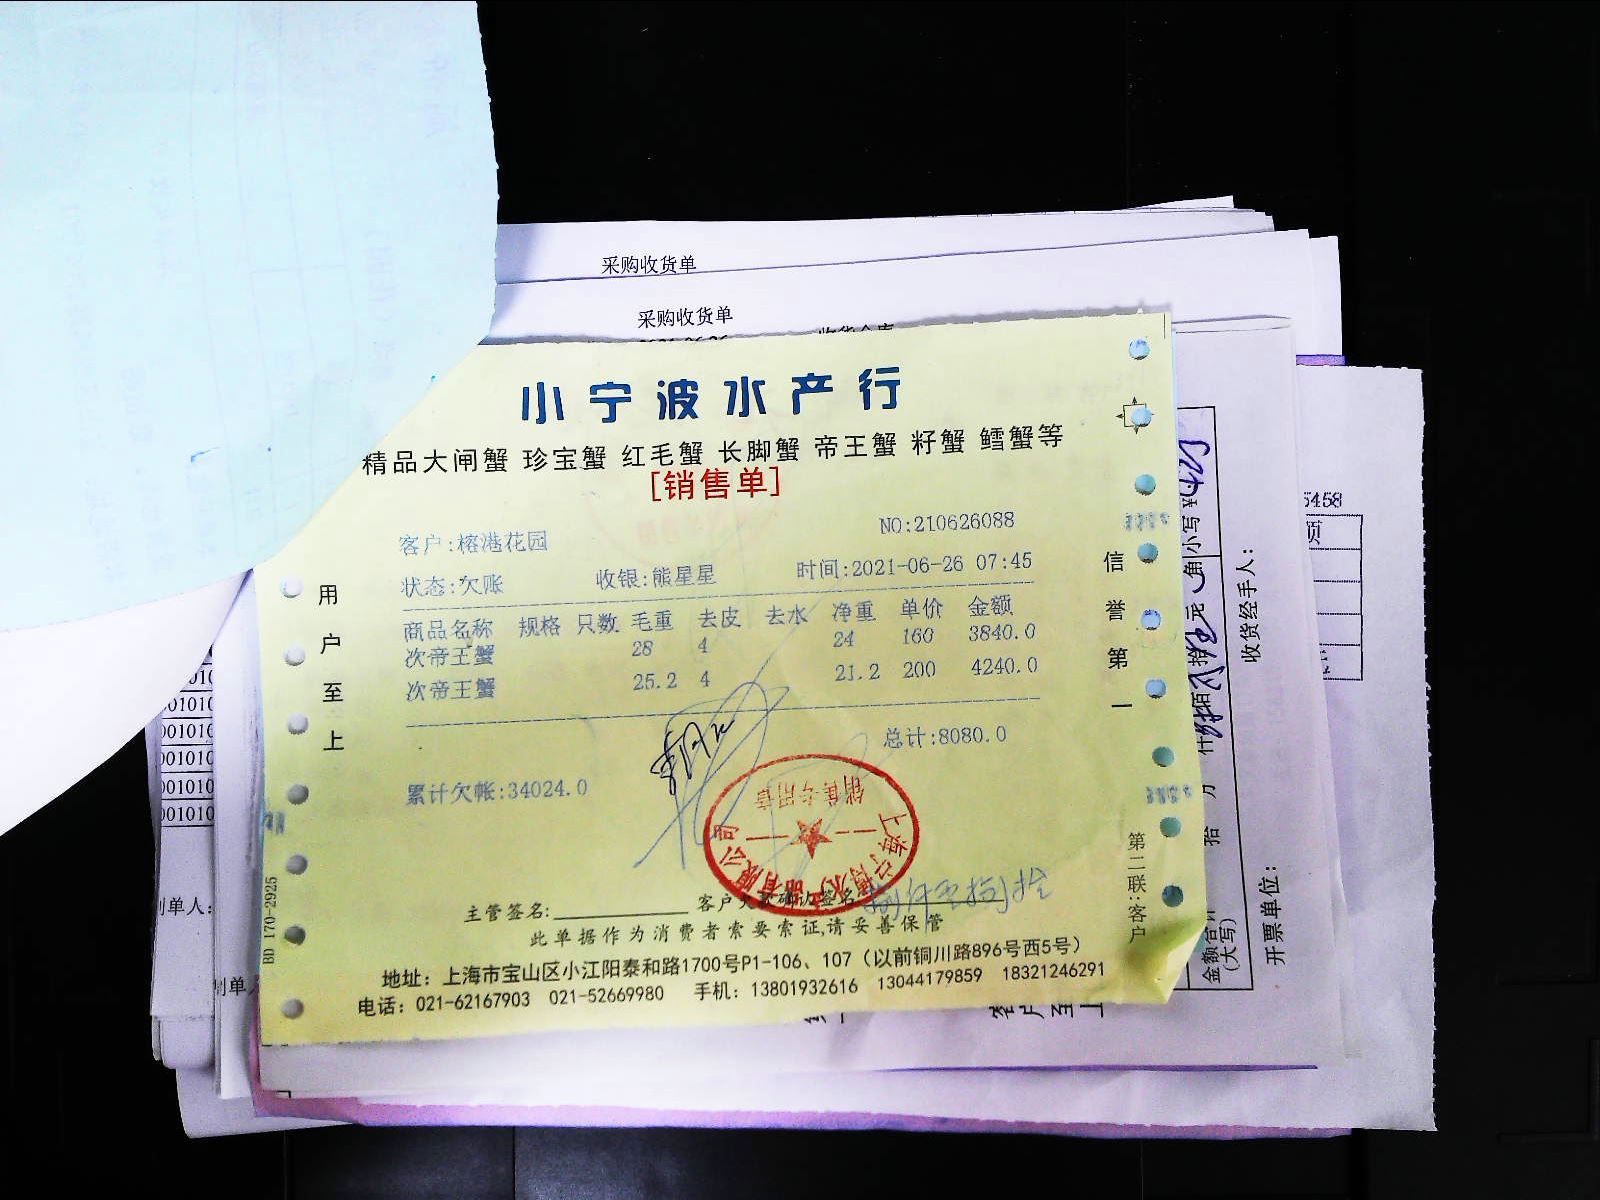 采购收货单
采购收货单
小宁波水产行
精品大闸蟹 珍宝蟹 红毛蟹 长脚蟹 帝王蟹 籽蟹 鳕蟹等
[销售单]
NO:210626088
客户:榕港花园
状态:欠账 收银:熊星星 时间:2021-06-26 07:45
商品名称 规格 只数 毛重 去皮 去水 净重 单价 金额
次帝王蟹 28 4 24 160 3840.0
次帝王蟹 25.2 4 21.2 200 4240.0
总计:8080.0
累计欠帐:34024.0
用户至上
信誉第一
第二联:客户
BD 170-2925
销售专用章
主管签名: 客户欠款确认签名
此单据作为消费者索要索证,请妥善保管
地址：上海市宝山区小江阳泰和路1700号P1-106、107（以前铜川路896号西5号）
电话：021-62167903 021-52669980 手机：13801932616 13044179859 18321246291
5458
小写¥
金额合计
(大写)
拾 万 仟 佰 拾 元 角
收货经手人：
开票单位：
制单人:
制单人
01010
01010
01010
01010